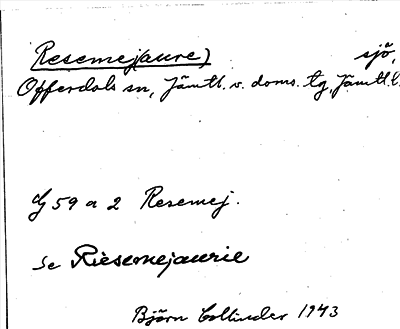 Resemej(aure) sjö,
Offerdals sn, Jämtl. v. doms. tg, Jämtl. l.
G 59 a 2 Resemej.
Se Riesemejaurie
Björn Collinder 1943